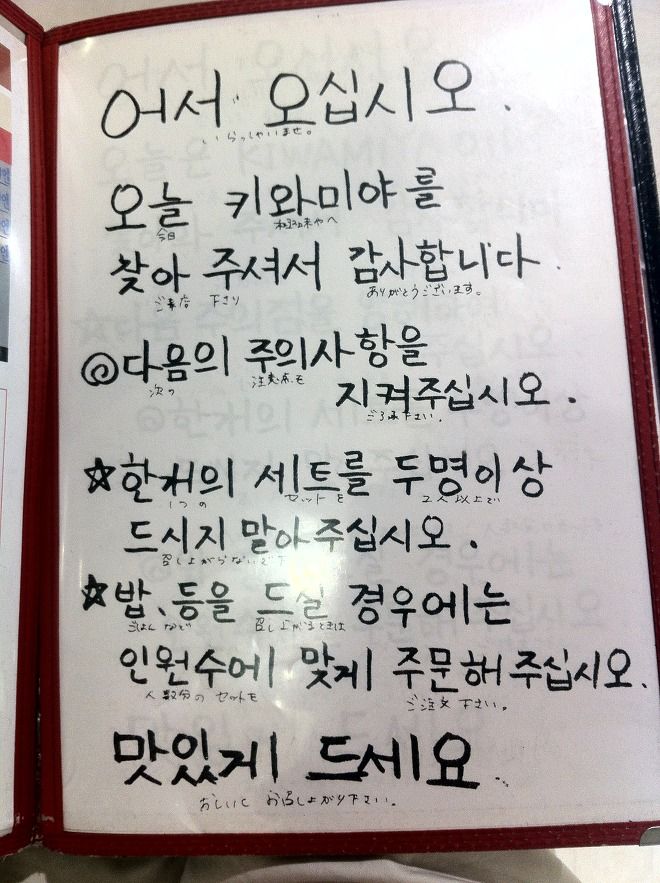 어서 오십시오.
いらっしゃいませ。
오늘 키와미야를
今日
찾아 주셔서 감사합니다.
ご来店 下さり ありがとうございます。
◎다음의 주의사항을
次の 注意点を
지켜주십시오.
ご了承下さい。
☆한개의 세트를 두명이상
1つの セットを 2人以上で
드시지 말아주십시오.
召し上がらないで下
☆밥、등을 드실 경우에는
ごはんなど 召し上がるときは
인원수에 맞게 주문해주십시오.
人数分の セットを ご注文下さい。
맛있게 드세요